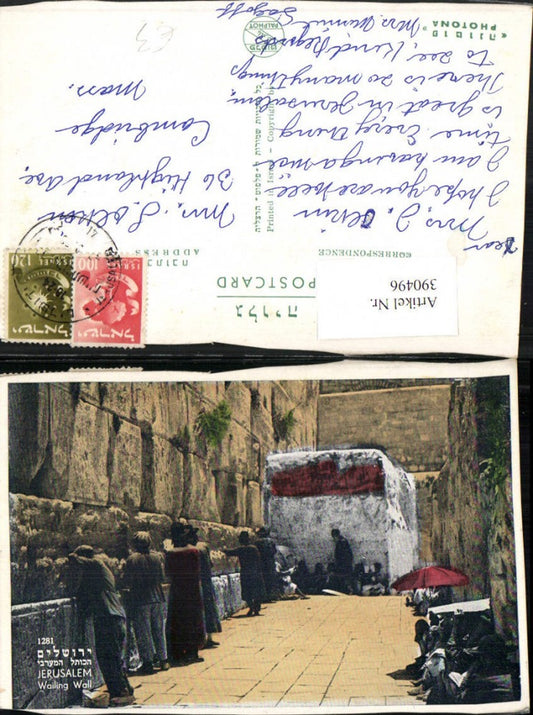 "פוטונה"
PHOTONA
PALPHOT
Dear
Mrs. J.
I hope you are well.
I am having a nice
time. Everything
is great in Jerusalem.
There is so many things
to see. Kind Regards
Mrs. Minnie
Mrs. J.
36 Highland Ave.
Cambridge
Mass.
כל הזכויות שמורות ל"פלפוט" הרצליה
Printed in Israel – Copyright by
CORRESPONDENCE
כתובת
ADDRESS
גלויה
POSTCARD
ישראל
ISRAEL
120
ישראל
ISRAEL
100
Artikel Nr.
390496
1281
ירושלים
הכותל המערבי
JERUSALEM
Wailing Wall